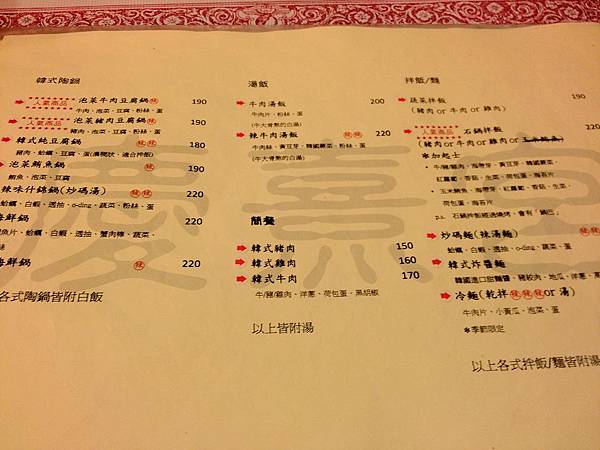 韓式陶鍋
人氣商品 泡菜牛肉豆腐鍋 辣 190
牛肉、泡菜、豆腐、粉絲、蛋
人氣商品 泡菜豬肉豆腐鍋 辣 190
豬肉、泡菜、豆腐、粉絲、蛋
韓式純豆腐鍋 辣辣 180
豬肉、蛤蠣、豆腐、蛋(濃稠狀，適合拌飯)
泡菜鮪魚鍋 辣 190
鮪魚、泡菜、豆腐
辣味什錦鍋(炒碼湯) 辣辣 220
蛤蠣、白蝦、透抽、o-ding、蔬菜、粉絲、蛋
海鮮鍋 220
魚片、蛤蠣、白蝦、透抽、蟹肉棒、蔬菜、
絲
海鮮鍋 辣 220
各式陶鍋皆附白飯
湯飯
牛肉湯飯 200
牛肉片、粉絲、蛋
(牛大骨熬的白湯)
辣牛肉湯飯 辣辣 220
牛肉絲、黃豆芽、韓國蕨菜、粉絲、蛋
(牛大骨熬的白湯)
簡餐
韓式豬肉 150
韓式雞肉 160
韓式牛肉 170
牛/豬/雞肉、洋蔥、荷包蛋、黑胡椒
以上皆附湯
拌飯/麵
蔬菜拌飯 190
(豬肉 or 牛肉 or 雞肉)
人氣商品 石鍋拌飯 220
(豬肉 or 牛肉 or 雞肉 or
※加起士
牛/豬/雞肉、海帶芽、黃豆芽、韓國蕨菜、
紅蘿蔔、香菇、生菜、荷包蛋、海苔片
玉米鮪魚、海帶芽、紅蘿蔔、香菇、生菜、
荷包蛋、海苔片
p.s. 石鍋拌飯經過燒烤，會有「鍋巴」
炒碼麵(辣湯麵)
蛤蠣、白蝦、透抽、o-ding、蔬菜、蛋
韓式炸醬麵
韓國進口甜麵醬、豬絞肉、地瓜、洋蔥、
冷麵(乾拌 辣辣辣 or 湯)
牛肉片、小黃瓜、泡菜、蛋
※季節限定
以上各式拌飯/麵皆附湯
慶熹